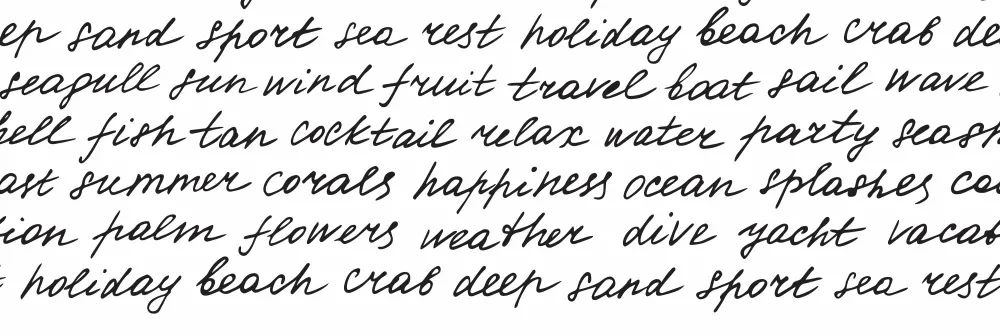 ep sand sport sea rest holiday beach crab de
seagull sun wind fruit travel boat sail wave
hell fish tan cocktail relax water party seash
ast summer corals happiness ocean splashes co
ion palm flowers weather dive yacht vacat
holiday beach crab deep sand sport sea rest